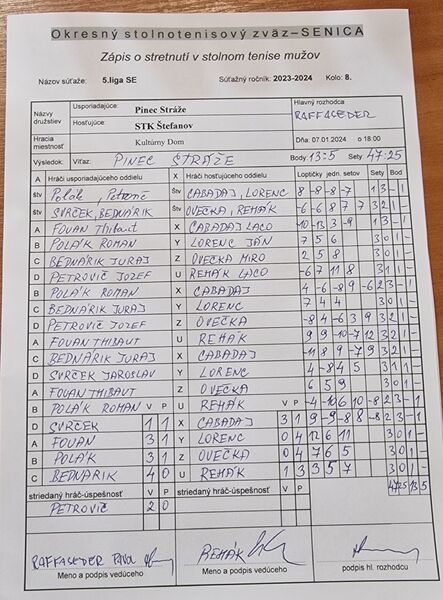 Okresný stolnotenisový zväz–SENICA
Zápis o stretnutí v stolnom tenise mužov
Názov súťaže: 5.liga SE Súťažný ročník: 2023-2024 Kolo: 8.
Názvy družstiev Usporiadajúce: Pinec Stráže Hlavný rozhodca RAFFASEDER
Hosťujúce: STK Štefanov
Hracia miestnosť Kultúrny Dom Dňa: 07.01.2024 o 18:00
Výsledok: Víťaz: PINEC STRÁŽE Body: 13:5 Sety: 47:25
A Hráči usporiadajúceho oddielu X Hráči hosťujúceho oddielu Loptičky jedn. setov Sety Bod
štv Polák, Petrovič Štv CABADAJ, LORENC 8 -8 -8 -7 1 3 - 1
štv SVRČEK, BEDNÁRIK Štv OVEČKA, REHÁK -6 -6 8 7 7 3 2 1 -
A FOUAN Thibaut X CABADAJ LACO -10 -13 3 -9 1 3 - 1
B POLÁK ROMAN Y LORENC JÁN 7 5 6 3 0 1 -
C BEDNÁRIK JURAJ Z OVEČKA MIRO 2 5 8 3 0 1 -
D PETROVIČ JOZEF U REHÁK LACO -6 7 11 8 3 1 1 -
B POLÁK ROMAN X CABADAJ 4 -6 -8 9 -6 2 3 - 1
C BEDNÁRIK JURAJ Y LORENC 7 4 4 3 0 1 -
D PETROVIČ JOZEF Z OVEČKA -8 4 -6 3 9 3 2 1 -
A FOUAN THIBAUT U REHÁK 9 9 -10 -7 12 3 2 1 -
C BEDNÁRIK JURAJ X CABADAJ -11 8 9 -7 9 3 2 1 -
D SVRČEK JAROSLAV Y LORENC 4 -8 4 5 3 1 1 -
A FOUAN THIBAUT Z OVEČKA 6 5 9 3 0 1 -
B POLÁK ROMAN V P U REHÁK V P -4 -10 6 10 -8 2 3 - 1
D SVRČEK 1 1 X CABADAJ 3 1 9 -9 -8 8 -8 2 3 - 1
A FOUAN 3 1 Y LORENC 0 4 12 6 11 3 0 1 -
B POLÁK 3 1 Z OVEČKA 0 4 7 6 5 3 0 1 -
C BEDNÁRIK 4 0 U REHÁK 1 3 3 5 7 3 0 1 -
striedaný hráč-úspešnosť V P striedaný hráč-úspešnosť V P 47 25 13 5
PETROVIČ 2 0
RAFFASEDER REHÁK
Meno a podpis vedúceho Meno a podpis vedúceho podpis hl. rozhodcu